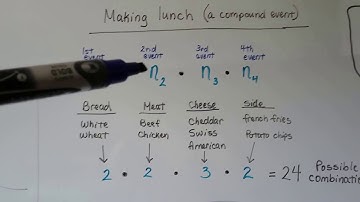 Making lunch (a compound event)
1st event 2nd event 3rd event 4th event
n2 · n3 · n4
Bread Meat Cheese Side
White Beef Cheddar french fries
Wheat Chicken Swiss Potato chips
American
2 · 2 · 3 · 2 = 24 Possible
BOLD